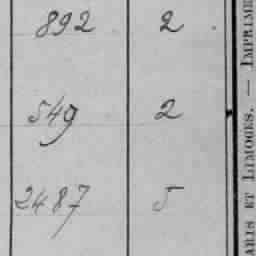 892 2
549 2
2487 5
ARIS ET LIMOGES. — IMPRIME